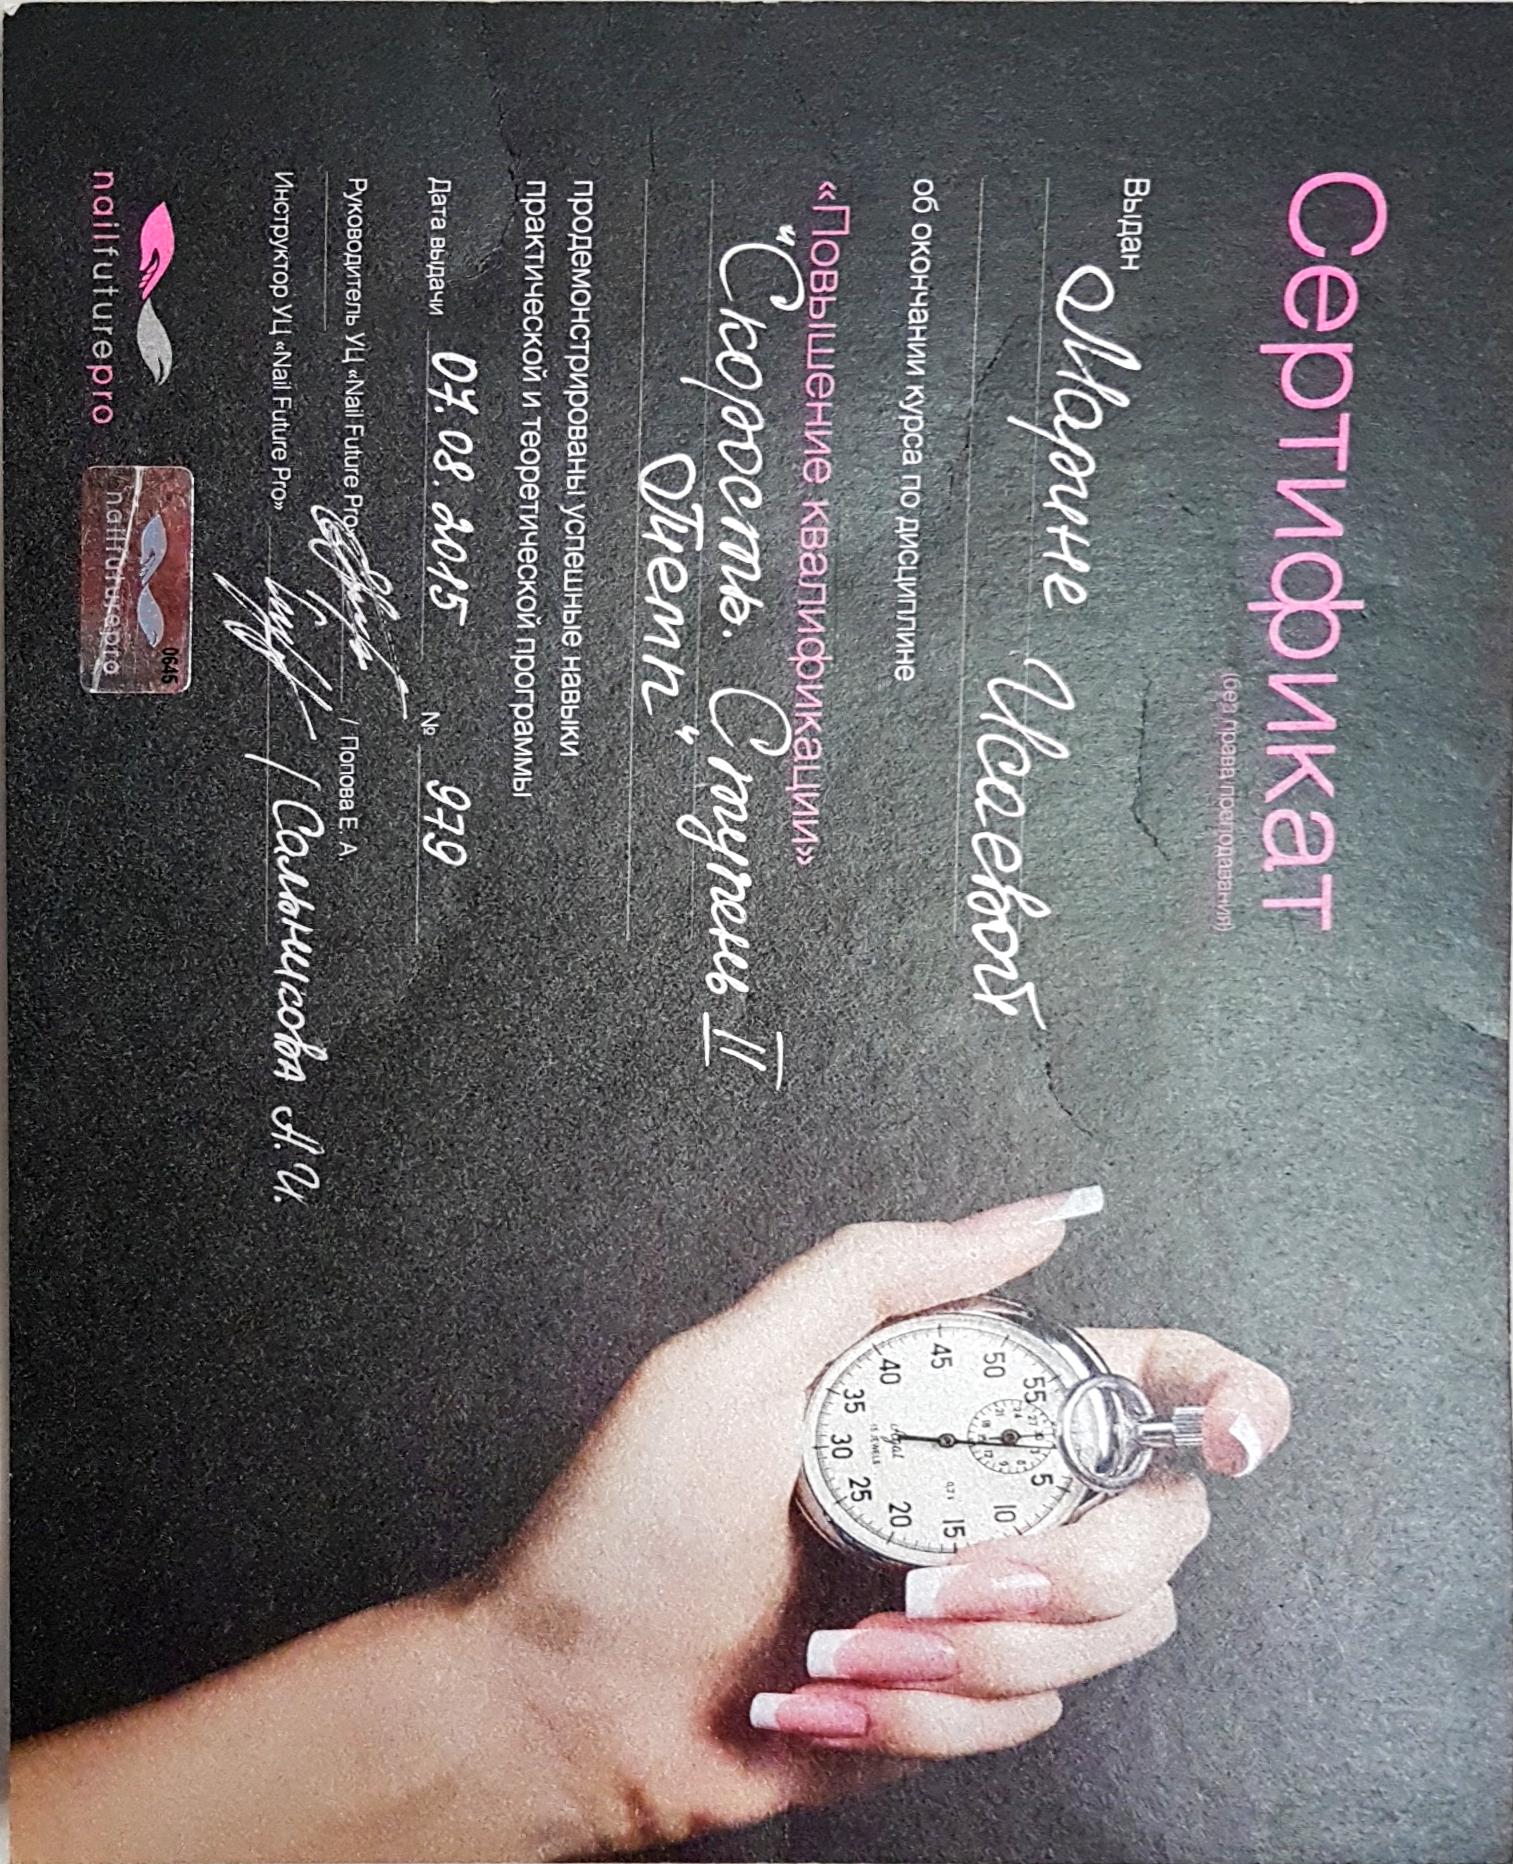 Сертификат
(без права преподавания)
Выдан Марине Исаевой
об окончании курса по дисциплине
«Повышение квалификации»
"Скорость. Ступень II
Типсы"
продемонстрированы успешные навыки
практической и теоретической программы
Дата выдачи 07.08.2015 № 979
Руководитель УЦ «Nail Future Pro» / Попова Е. А
Инструктор УЦ «Nail Future Pro» / Сальникова А.И.
nailfuturepro
nailfuturepro
0645
55
5
50
10
45
15
40
20
35
25
30
15 JEWELS